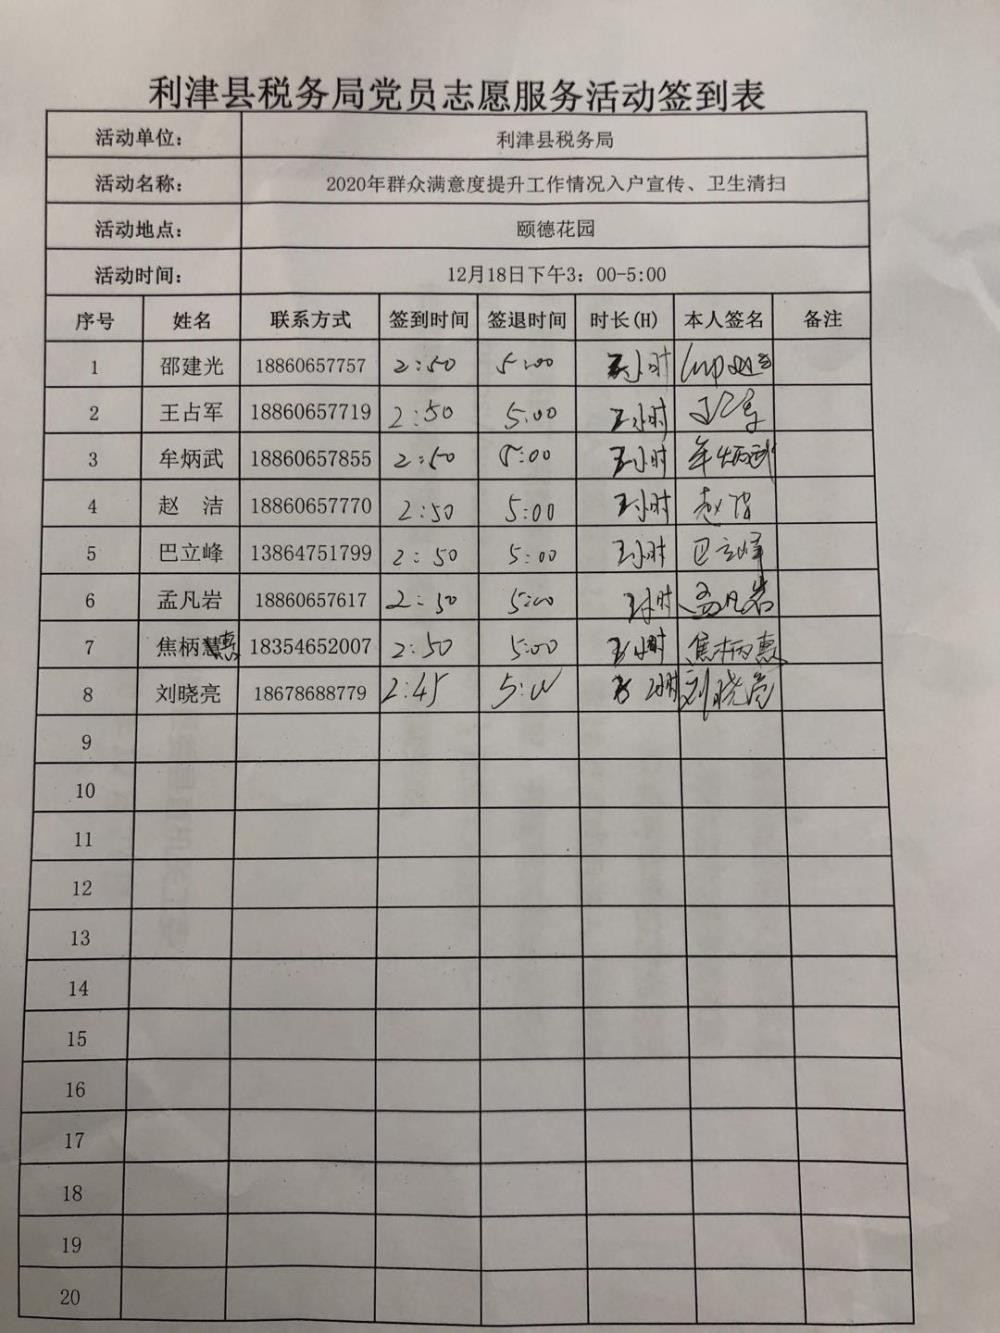 利津县税务局党员志愿服务活动签到表
活动单位： 利津县税务局
活动名称： 2020年群众满意度提升工作情况入户宣传、卫生清扫
活动地点： 颐德花园
活动时间： 12月18日下午3：00-5:00
序号 姓名 联系方式 签到时间 签退时间 时长(H) 本人签名 备注
1 邵建光 18860657757 2:50 5:00 小时
2 王占军 18860657719 2:50 5:00 小时
3 牟炳武 18860657855 2:50 5:00 小时 牟炳武
4 赵 洁 18860657770 2:50 5:00 小时 赵洁
5 巴立峰 13864751799 2:50 5:00 小时 巴立峰
6 孟凡岩 18860657617 2:50 5:00 小时 孟凡岩
7 焦柄惠 18354652007 2:50 5:00 小时 焦柄惠
8 刘晓亮 18678688779 2:45 5:00 小时 刘晓亮
9
10
11
12
13
14
15
16
17
18
19
20